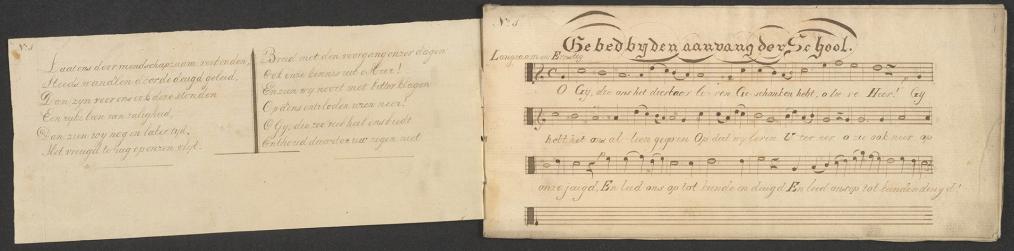 No. 1
Laat ons door mendschap zaam verbonden,
Steeds wandlen door de deugd geleid,
Dan zyn voor ons ook deze stonden
Een ryke bron van zaligheid,
Dan zien wy nog in later tyd,
Met vreugd te rug op onzen vlyt.
Breid met den voorgang onzer dagen
Ook onze kennis uit o Heer!
En zien wy nooit met bitter klagen
Op dees ontvloden uren neer!
O Gy, die zoo veel heil ons biedt
Onthoud daartoe uw zegen niet
No. 1
Gebed by den aanvang der School.
Langzaam en Ernstig
O Gy, die ons het dierbaar leven Geschonken hebt, o lieve Heer! Gy
hebt het ons alleen gegeven Op dat wy leven U ter eer o zie ook neer op
onze jeugd, En leid ons op tot kunde en deugd En leid ons op tot kunde en deugd!